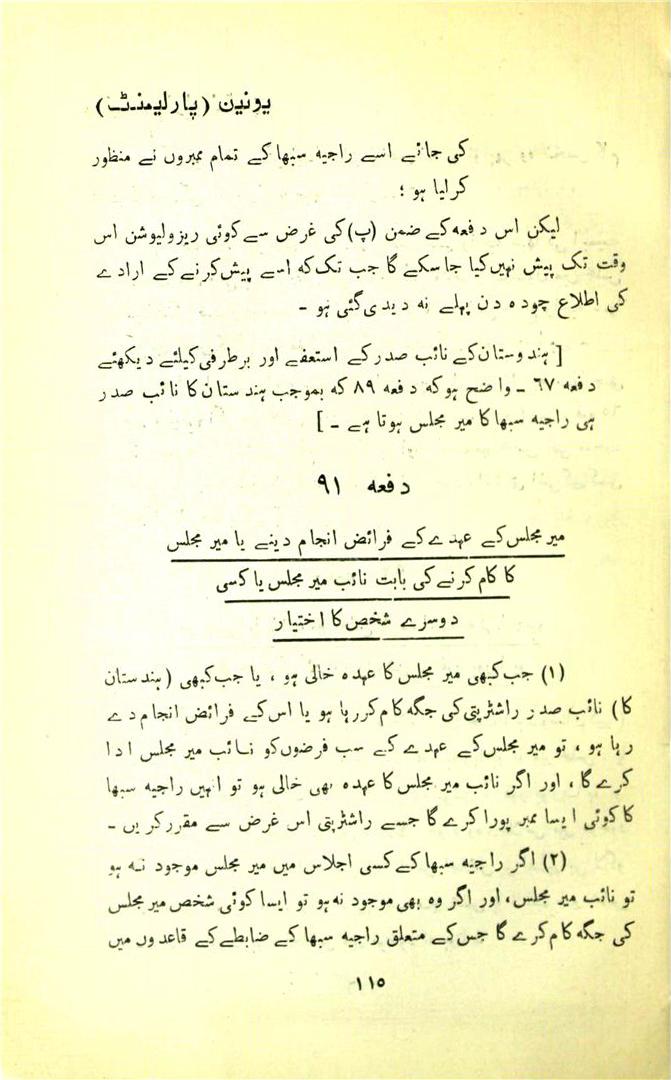 یونین (پارلیمنٹ)
کی جائے اسے راجیہ سبھا کے تمام ممبروں نے منظور
کرلیا ہو ؛
لیکن اس دفعہ کے ضمن (پ) کی غرض سے کوئی ریزولیوشن اس
وقت تک پیش نہیں کیا جاسکے گا جب تک کہ اسے پیش کرنے کے ارادے
کی اطلاع چودہ دن پہلے نہ دیدی گئی ہو ۔
[ ہندوستان کے نائب صدر کے استعفے اور برطرفی کیلئے دیکھئے
دفعہ ۶۷ ۔ واضح ہو کہ دفعہ ۸۹ کہ بموجب ہندستان کا نائب صدر
ہی راجیہ سبھا کا میر مجلس ہوتا ہے ۔ ]
دفعہ ۹۱
میر مجلس کے عہدے کے فرائض انجام دینے یا میر مجلس
کا کام کرنے کی بابت نائب میر مجلس یا کسی
دوسرے شخص کا اختیار
(۱) جب کبھی میر مجلس کا عہدہ خالی ہو ، یا جب کبھی (ہندستان
کا) نائب صدر راشٹرپتی کی جگہ کام کررہا ہو یا اس کے فرائض انجام دے
رہا ہو ، تو میر مجلس کے عہدے کے سب فرضوں کو نائب میر مجلس ادا
کرے گا ، اور اگر نائب میر مجلس کا عہدہ بھی خالی ہو تو انہیں راجیہ سبھا
کا کوئی ایسا ممبر پورا کرے گا جسے راشٹرپتی اس غرض سے مقرر کریں ۔
(۲) اگر راجیہ سبھا کے کسی اجلاس میں میر مجلس موجود نہ ہو
تو نائب میر مجلس ، اور اگر وہ بھی موجود نہ ہو تو ایسا کوئی شخص میر مجلس
کی جگہ کام کرے گا جس کے متعلق راجیہ سبھا کے ضابطے کے قاعدوں میں
۱۱۵